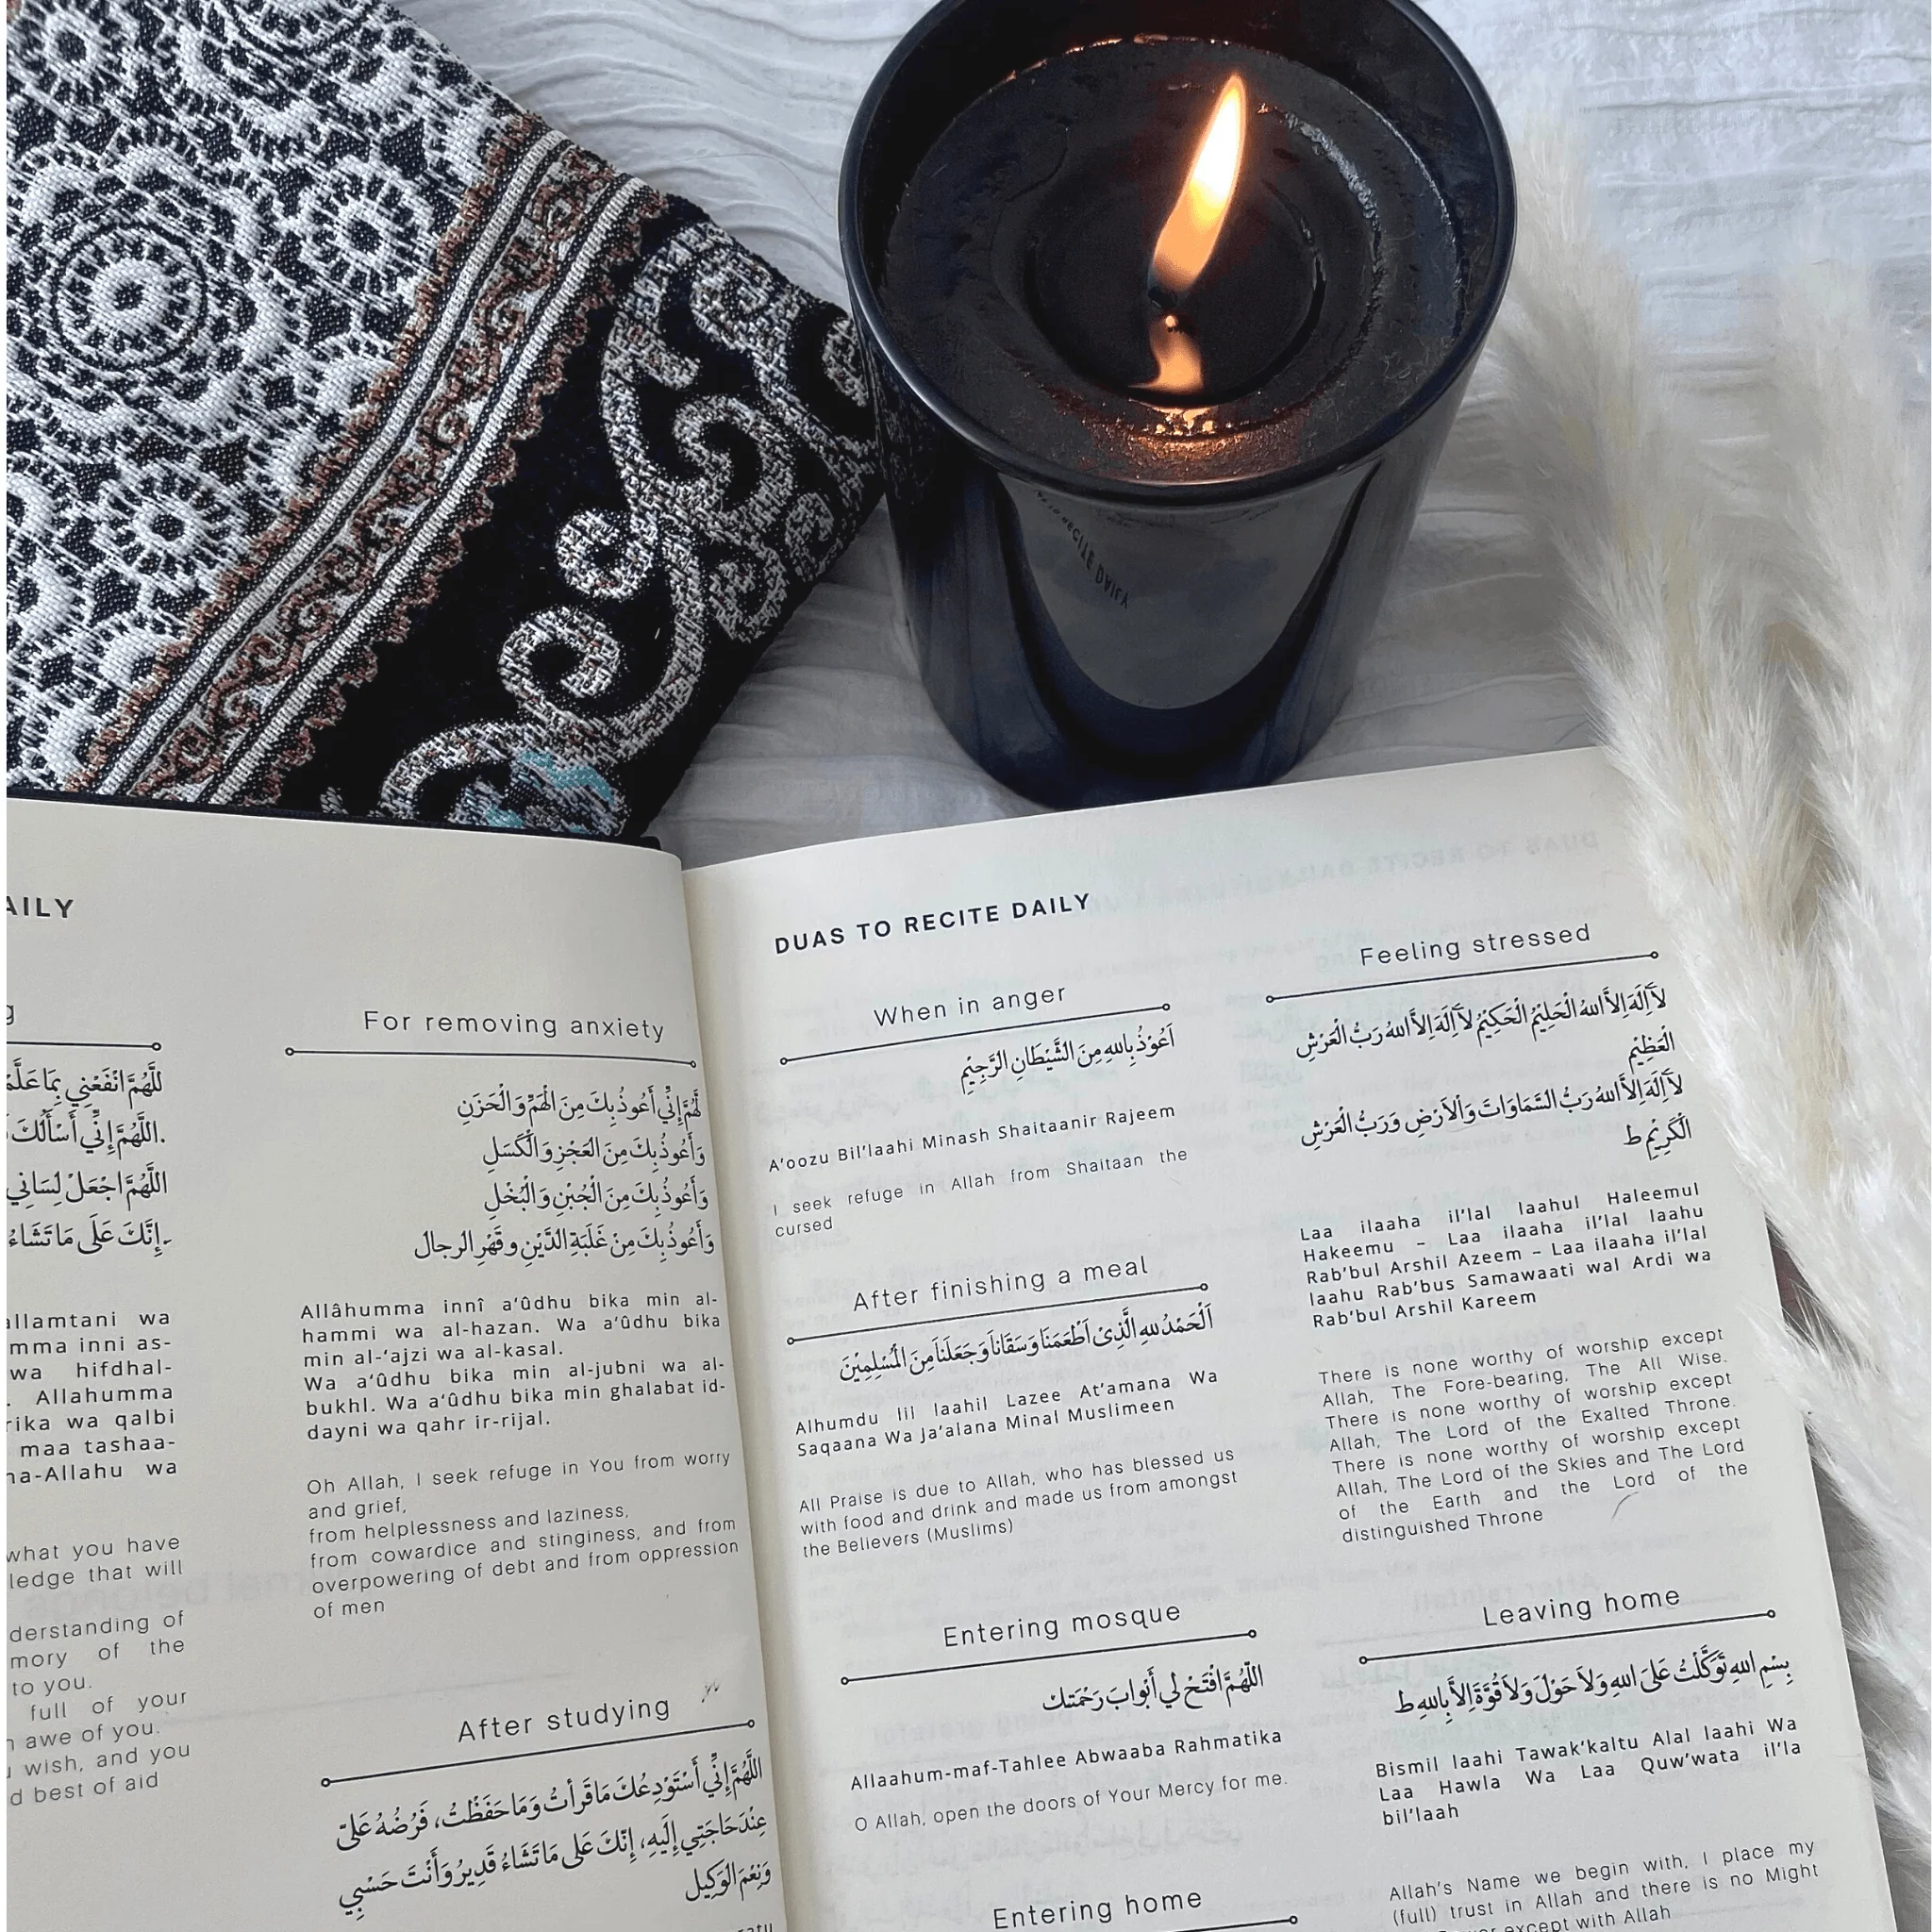 AILY
g
للَّهُمَّ انْفَعْنِي بِمَا عَلَّمْ
.اللَّهُمَّ إِنِّي أَسْأَلُكَ
اللَّهُمَّ اجْعَلْ لِسَانِي
إِنَّكَ عَلَى مَا تَشَاءُ
allamtani wa
mma inni as-
wa hifdhal-
. Allahumma
rika wa qalbi
maa tashaa-
na-Allahu wa
what you have
ledge that will
derstanding of
mory of the
to you.
full of your
n awe of you.
u wish, and you
d best of aid
For removing anxiety
لَّهُمَّ إِنِّي أَعُوذُ بِكَ مِنَ الْهَمِّ وَالْحَزَنِ
وَأَعُوذُ بِكَ مِنَ العَجْزِ وَالْكَسَلِ
وَأَعُوذُ بِكَ مِنَ الْجُبْنِ وَالْبُخْلِ
وَأَعُوذُ بِكَ مِنْ غَلَبَةِ الدَّيْنِ وقَهْرِ الرجال
Allâhumma innî a‘ûdhu bika min al-
hammi wa al-hazan. Wa a‘ûdhu bika
min al-‘ajzi wa al-kasal.
Wa a‘ûdhu bika min al-jubni wa al-
bukhl. Wa a‘ûdhu bika min ghalabat id-
dayni wa qahr ir-rijal.
Oh Allah, I seek refuge in You from worry
and grief,
from helplessness and laziness,
from cowardice and stinginess, and from
overpowering of debt and from oppression
of men
After studying
اللَّهُمَّ إِنِّي أَسْتَوْدِعُكَ مَا قَرَأتُ وَمَا حَفَظْتُ، فَرُضْهُ عَلَىّ
عِنْدَ حَاجَتِي إِلَيهِ، إِنَّكَ عَلَى مَا تَشَاءُ قَدِيرُ وَأَنْتَ حَسْبِي
وَنِعْمَ الوَكِيل
DUAS TO RECITE DAILY
When in anger
اَعُوْذُ بِاللهِ مِنَ الشَّيْطَانِ الرَّجِيْمِ
A’oozu Bil’laahi Minash Shaitaanir Rajeem
I seek refuge in Allah from Shaitaan the
cursed
After finishing a meal
اَلْحَمْدُ للهِ الَّذِىْ اَطْعَمَنَا وَسَقَانَا وَجَعَلَنَا مِنَ الْمُسْلِمِيْنَ
Alhumdu lil laahil Lazee At’amana Wa
Saqaana Wa Ja’alana Minal Muslimeen
All Praise is due to Allah, who has blessed us
with food and drink and made us from amongst
the Believers (Muslims)
Entering mosque
اللّهُمَّ افْتَحْ لي أَبْوابَ رَحْمَتك
Allaahum-maf-Tahlee Abwaaba Rahmatika
O Allah, open the doors of Your Mercy for me.
Entering home
Feeling stressed
لَآاِلٰهَ اِلاَّ اللهُ الْحَلِيْمُ الْحَكِيْمُ لَآاِلٰهَ اِلاَّ اللهُ رَبُّ الْعَرْشِ
الْعَظِيْمِ
لَآاِلٰهَ اِلاَّ اللهُ رَبُّ السَّمَاوَاتَ وَالْاَرْضِ وَرَبُّ الْعَرْشِ
الْكَرِيْمِ ط
Laa ilaaha il’lal laahul Haleemul
Hakeemu – Laa ilaaha il’lal laahu
Rab’bul Arshil Azeem – Laa ilaaha il’lal
laahu Rab’bus Samawaati wal Ardi wa
Rab’bul Arshil Kareem
There is none worthy of worship except
Allah, The Fore-bearing, The All Wise.
There is none worthy of worship except
Allah, The Lord of the Exalted Throne.
There is none worthy of worship except
Allah, The Lord of the Skies and The Lord
of the Earth and the Lord of the
distinguished Throne
Leaving home
بِسْمِ اللهِ تَوَكَّلْتُ عَلَىَ اللهِ وَلاَ حَوْلَ وَلاَ قُوَّةَ اِلاَّ بِاللهِ ط
Bismil laahi Tawak’kaltu Alal laahi Wa
Laa Hawla Wa Laa Quw’wata il’la
bil’laah
Allah’s Name we begin with, I place my
(full) trust in Allah and there is no Might
except with Allah